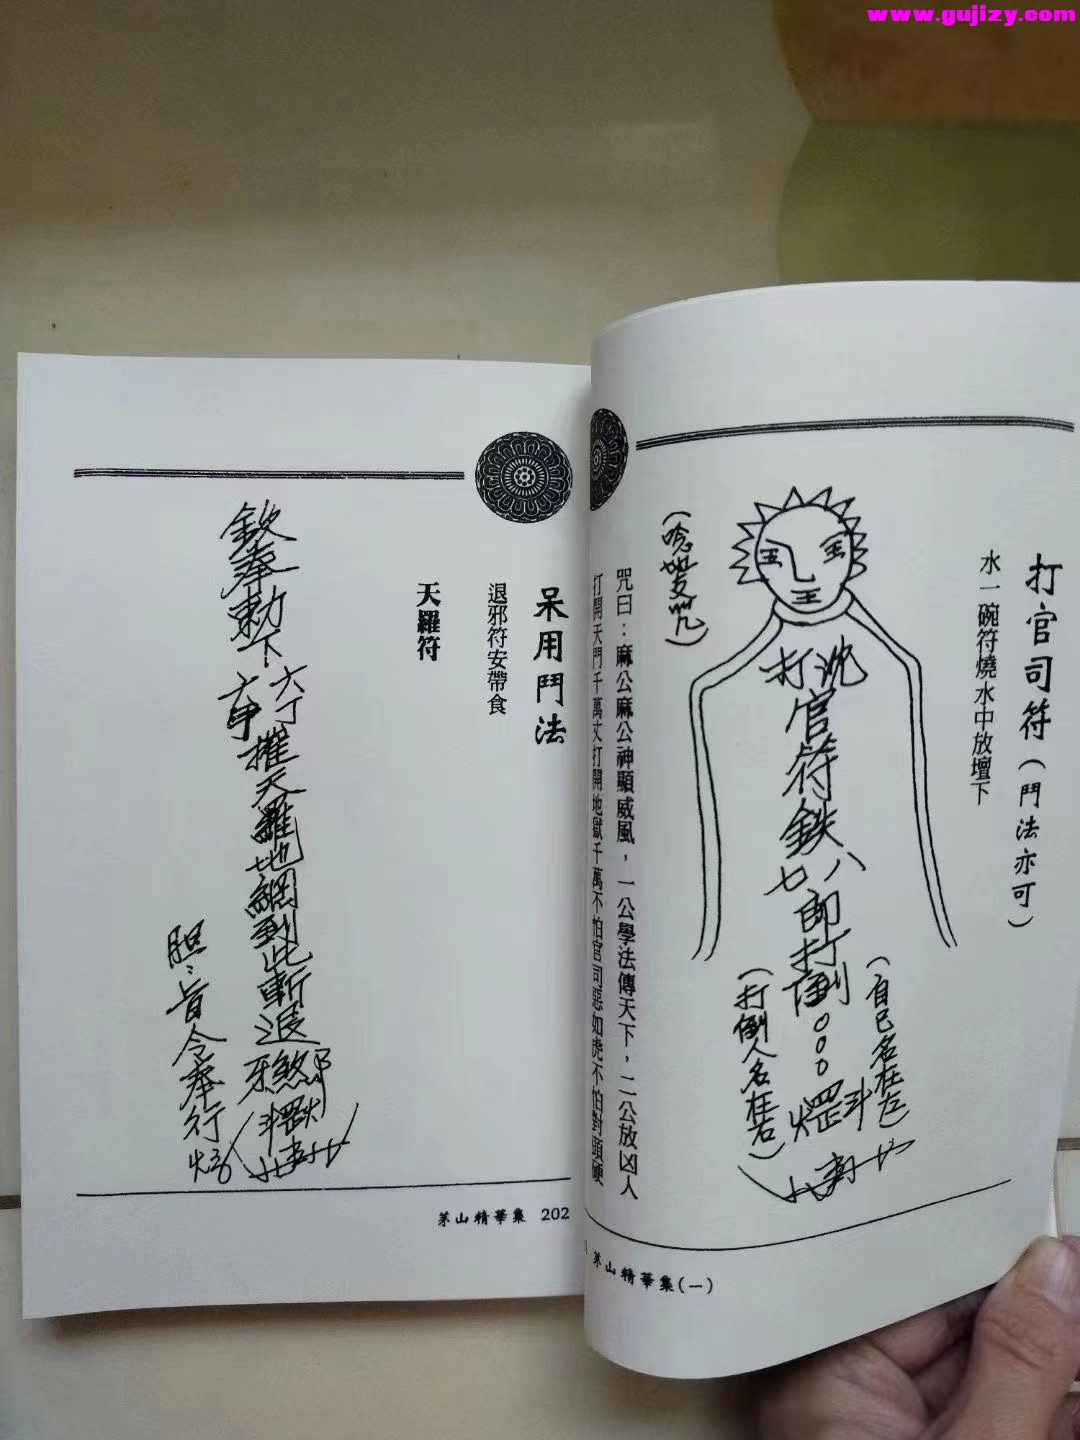 www.gujizy.com
打官司符(鬥法亦可)
水一碗符燒水中放壇下
沈
打官符鉄
七八
師打倒
(自己名在左)
(打倒人名在右)
(唸咒)
咒曰：麻公麻公神顯威風，一公學法傳天下，二公放凶人
打開天門千萬丈打開地獄千萬不怕官司惡如虎不怕對頭硬
茅山精華集(一)
呆用鬥法
退邪符安帶食
天羅符
欽奉勅下
六丁
六甲
摧天羅地網到此斬退
邪
煞
旨令奉行
茅山精華集 202